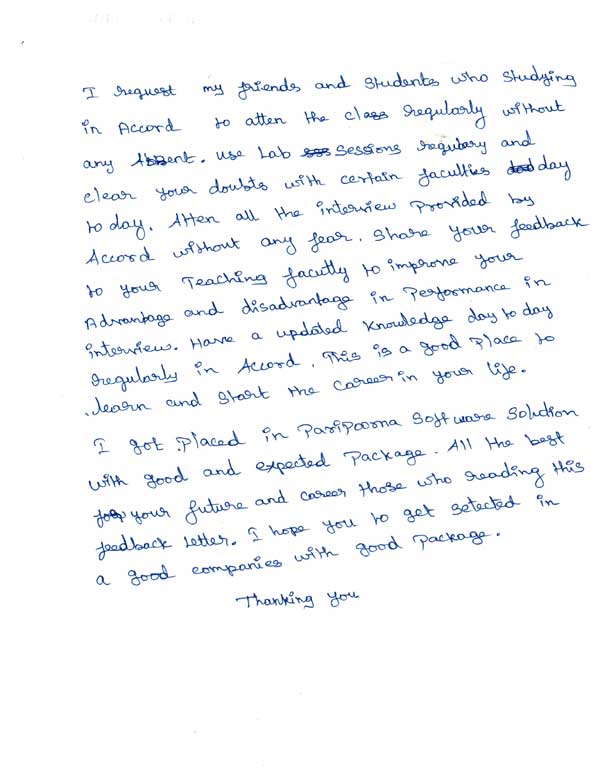 I request my friends and students who studying
in Accord to atten the class regularly without
any Absent. use Lab sessions regulary and
clear your doubts with certain faculties day
to day. Atten all the interview provided by
Accord without any fear. Share your feedback
to your Teaching facutly to improve your
Advantage and disadvantage in Performance in
interview. Have a updated knowledge day to day
regularly in Accord. This is a good place to
learn and start the career in your life.
I got placed in Paripoorna Software Solution
with good and expected Package. All the best
your future and career those who reading this
feedback letter. I hope you to get selected in
a good companies with good package.
Thanking you